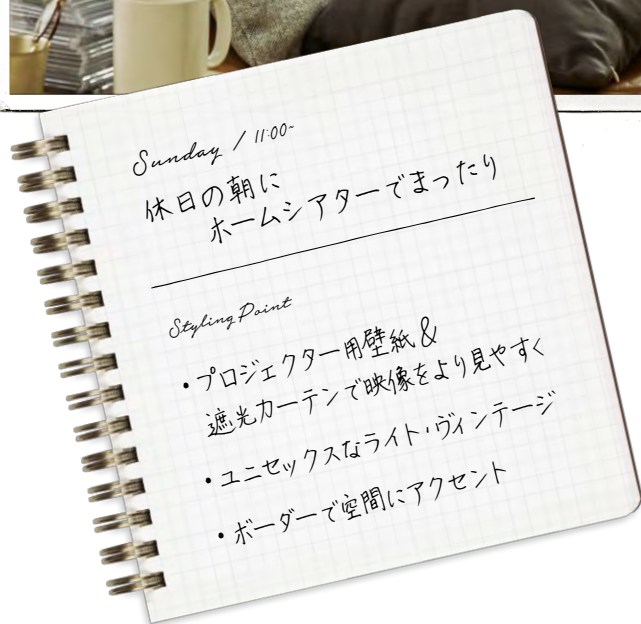 Sunday / 11:00~
休日の朝に
ホームシアターでまったり
Styling Point
・プロジェクター用壁紙&
遮光カーテンで映像をより見やすく
・ユニセックスなライト・ヴィンテージ
・ボーダーで空間にアクセント